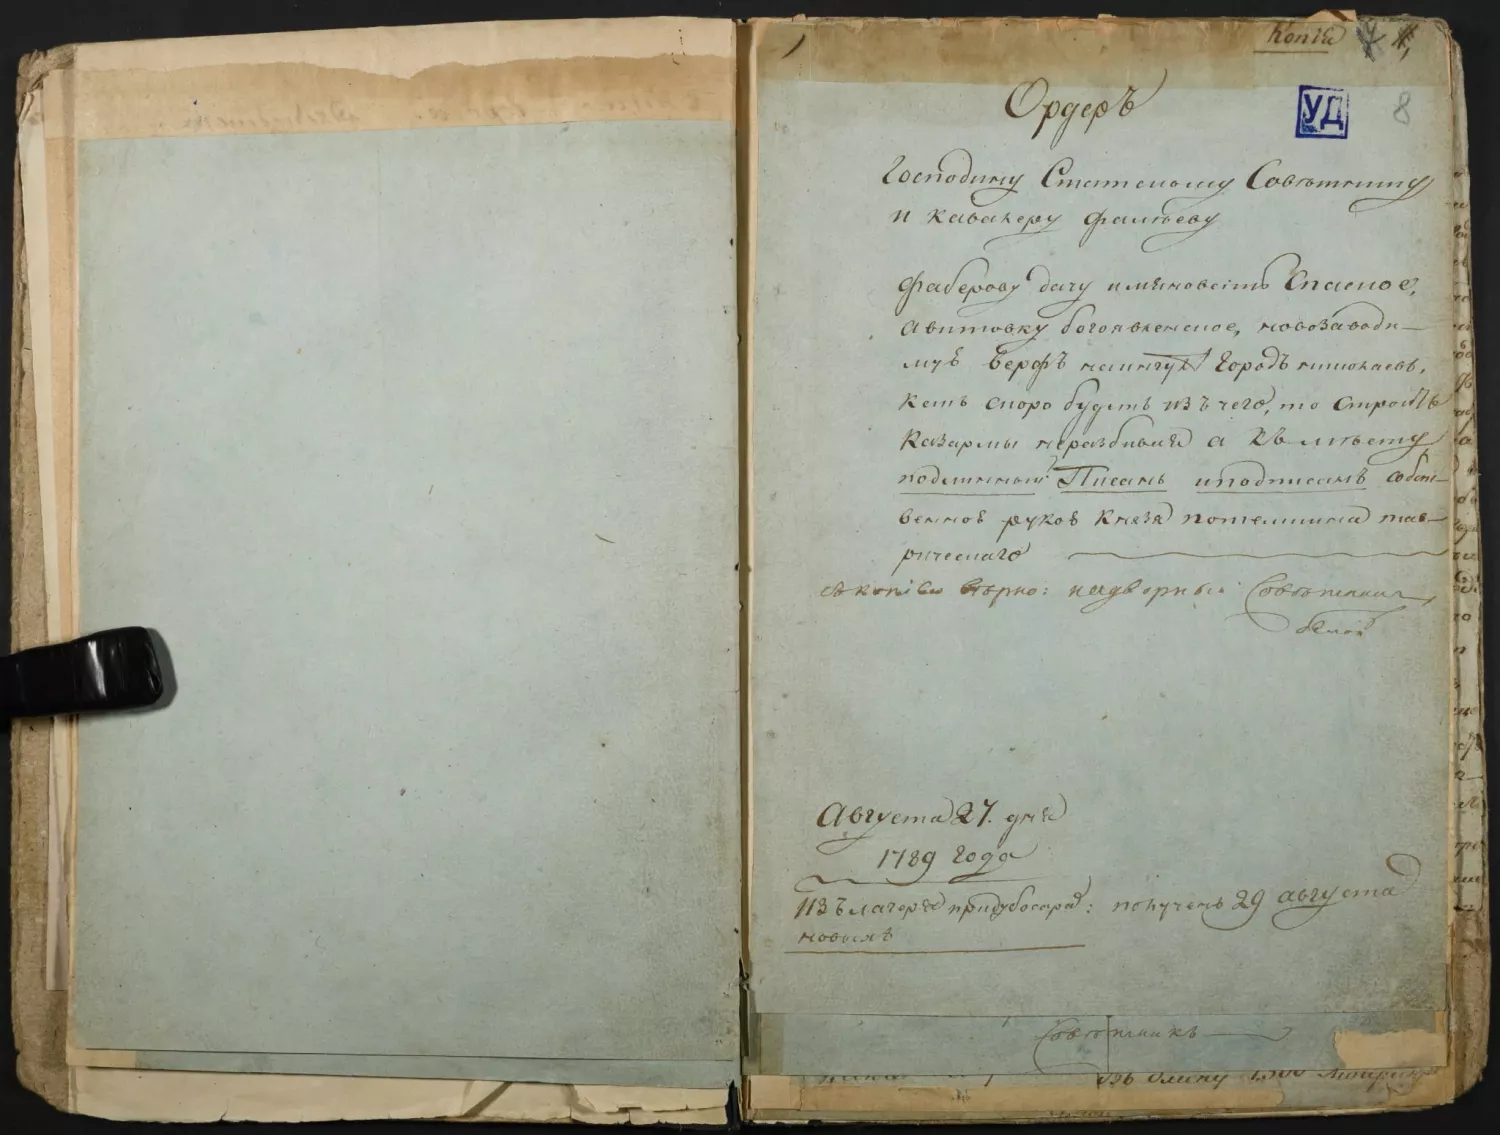 Копія
Ордеръ
УД
8
Господину Статскому Совѣтнику
и кавалеру Фалѣеву
Фаберову дачу имяновать Спаское,
а витовку богоявленское, новозаводи-
муѣ верфъ городъ николаевъ,
скоро будетъ изъ чего, то строитъ
Казармы а къ
подлинный Писанъ иподписанъ собст-
венноѣ рукоѣ Князя потемкина тав-
рическаго
съ копіею вѣрно: надворный Совѣтникъ
Августа 27. дня
1789 года
Изълагеря придубосара: полученъ 29 августа
Совѣтникъ
длину